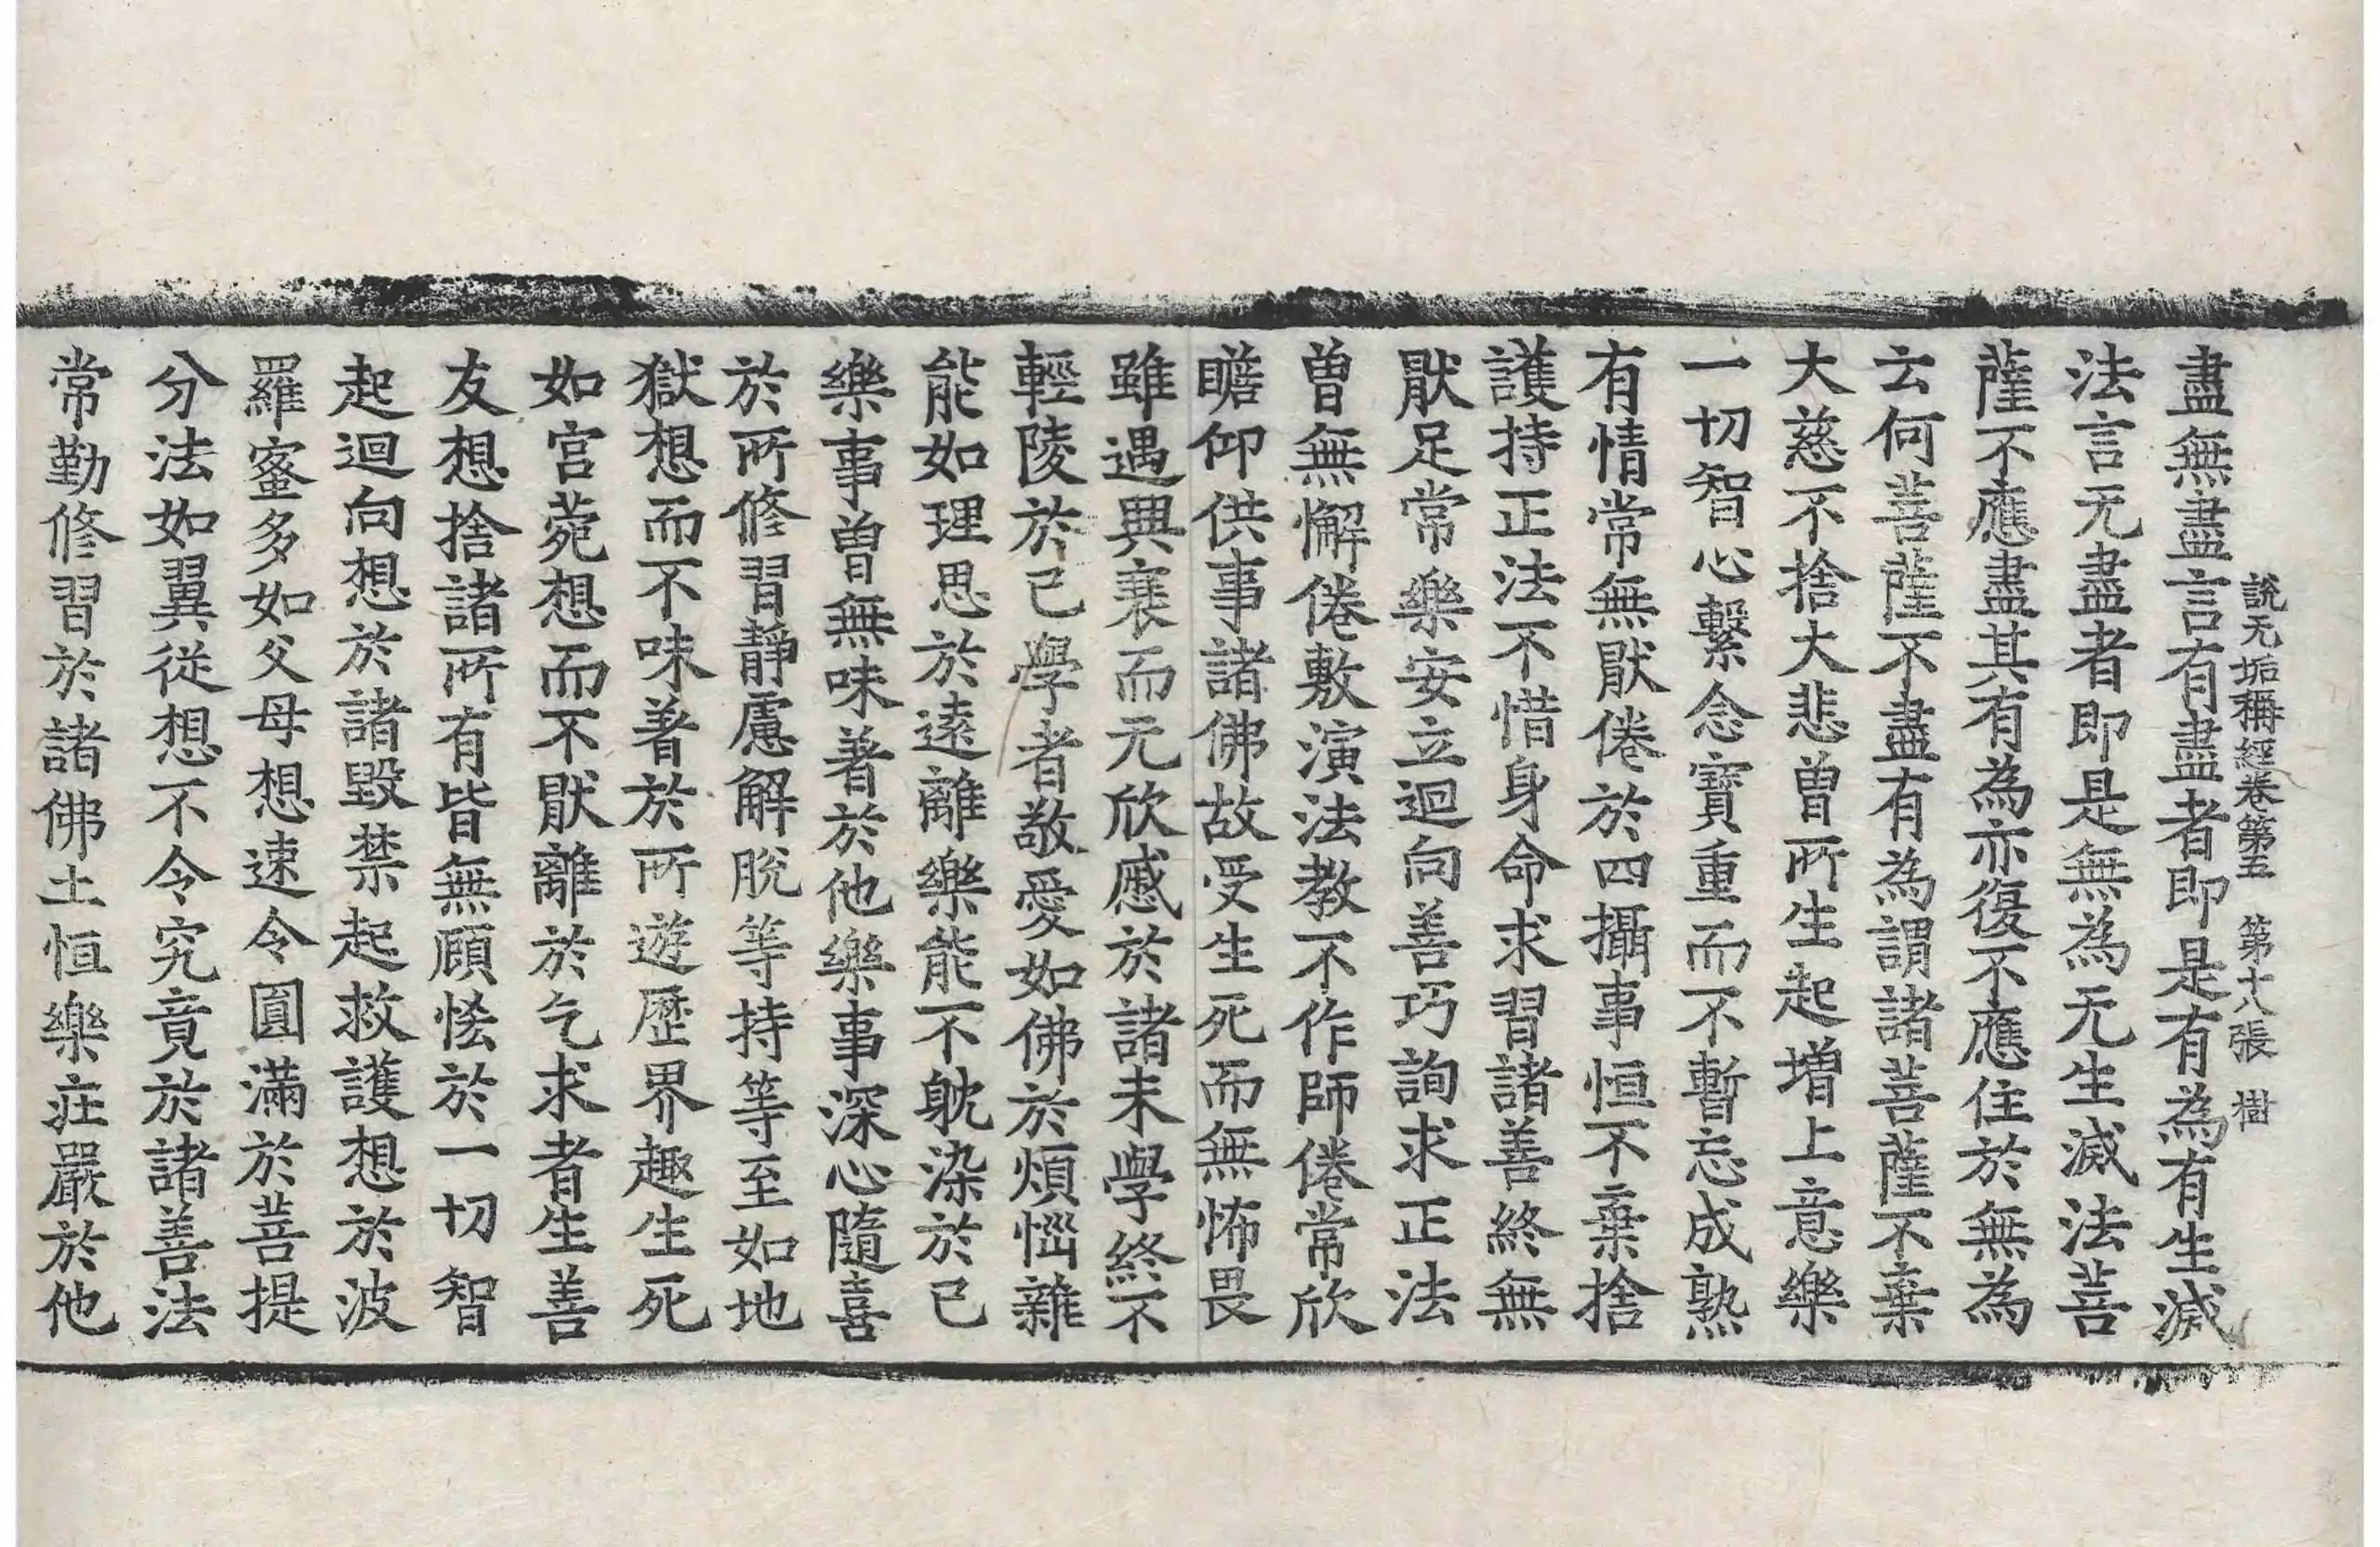 說无垢稱經卷第五　第十八張　樹
盡無盡言有盡者即是有為有生滅
法言无盡者即是無為无生滅法菩
薩不應盡其有為亦復不應住於無為
云何菩薩不盡有為謂諸菩薩不棄
大慈不捨大悲曾所生起增上意樂
一切智心繫念寶重而不暫忘成熟
有情常無厭倦於四攝事恒不棄捨
護持正法不惜身命求習諸善終無
猒足常樂安立迴向善巧詢求正法
曾無懈倦敷演法教不作師倦常欣
瞻仰供事諸佛故受生死而無怖畏
雖遇興衰而无欣慼於諸未學終不
輕陵於已學者敬愛如佛於煩惱雜
能如理思於遠離樂能不躭染於己
樂事曾無味著於他樂事深心隨喜
於所修習靜慮解脫等持等至如地
獄想而不味著於所遊歷界趣生死
如宮菀想而不猒離於乞求者生善
友想捨諸所有皆無顧悋於一切智
起迴向想於諸毀禁起救護想於波
羅蜜多如父母想速令圓滿於菩提
分法如翼從想不令究竟於諸善法
常勤修習於諸佛土恒樂莊嚴於他